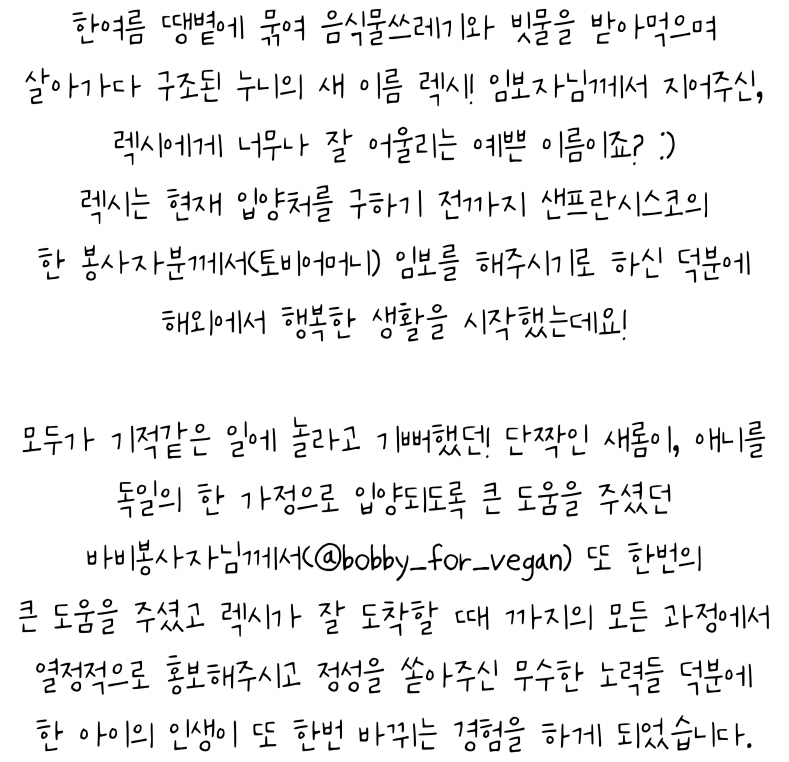 한여름 땡볕에 묶여 음식물쓰레기와 빗물을 받아먹으며
살아가다 구조된 누니의 새 이름 렉시! 임보자님께서 지어주신,
렉시에게 너무나 잘 어울리는 예쁜 이름이죠? :)
렉시는 현재 입양처를 구하기 전까지 샌프란시스코의
한 봉사자분께서(토비어머니) 임보를 해주시기로 하신 덕분에
해외에서 행복한 생활을 시작했는데요!
모두가 기적같은 일에 놀라고 기뻐했던! 단짝인 새롬이, 애니를
독일의 한 가정으로 입양되도록 큰 도움을 주셨던
바비봉사자님께서(@bobby_for_vegan) 또 한번의
큰 도움을 주셨고 렉시가 잘 도착할 때 까지의 모든 과정에서
열정적으로 홍보해주시고 정성을 쏟아주신 무수한 노력들 덕분에
한 아이의 인생이 또 한번 바뀌는 경험을 하게 되었습니다.